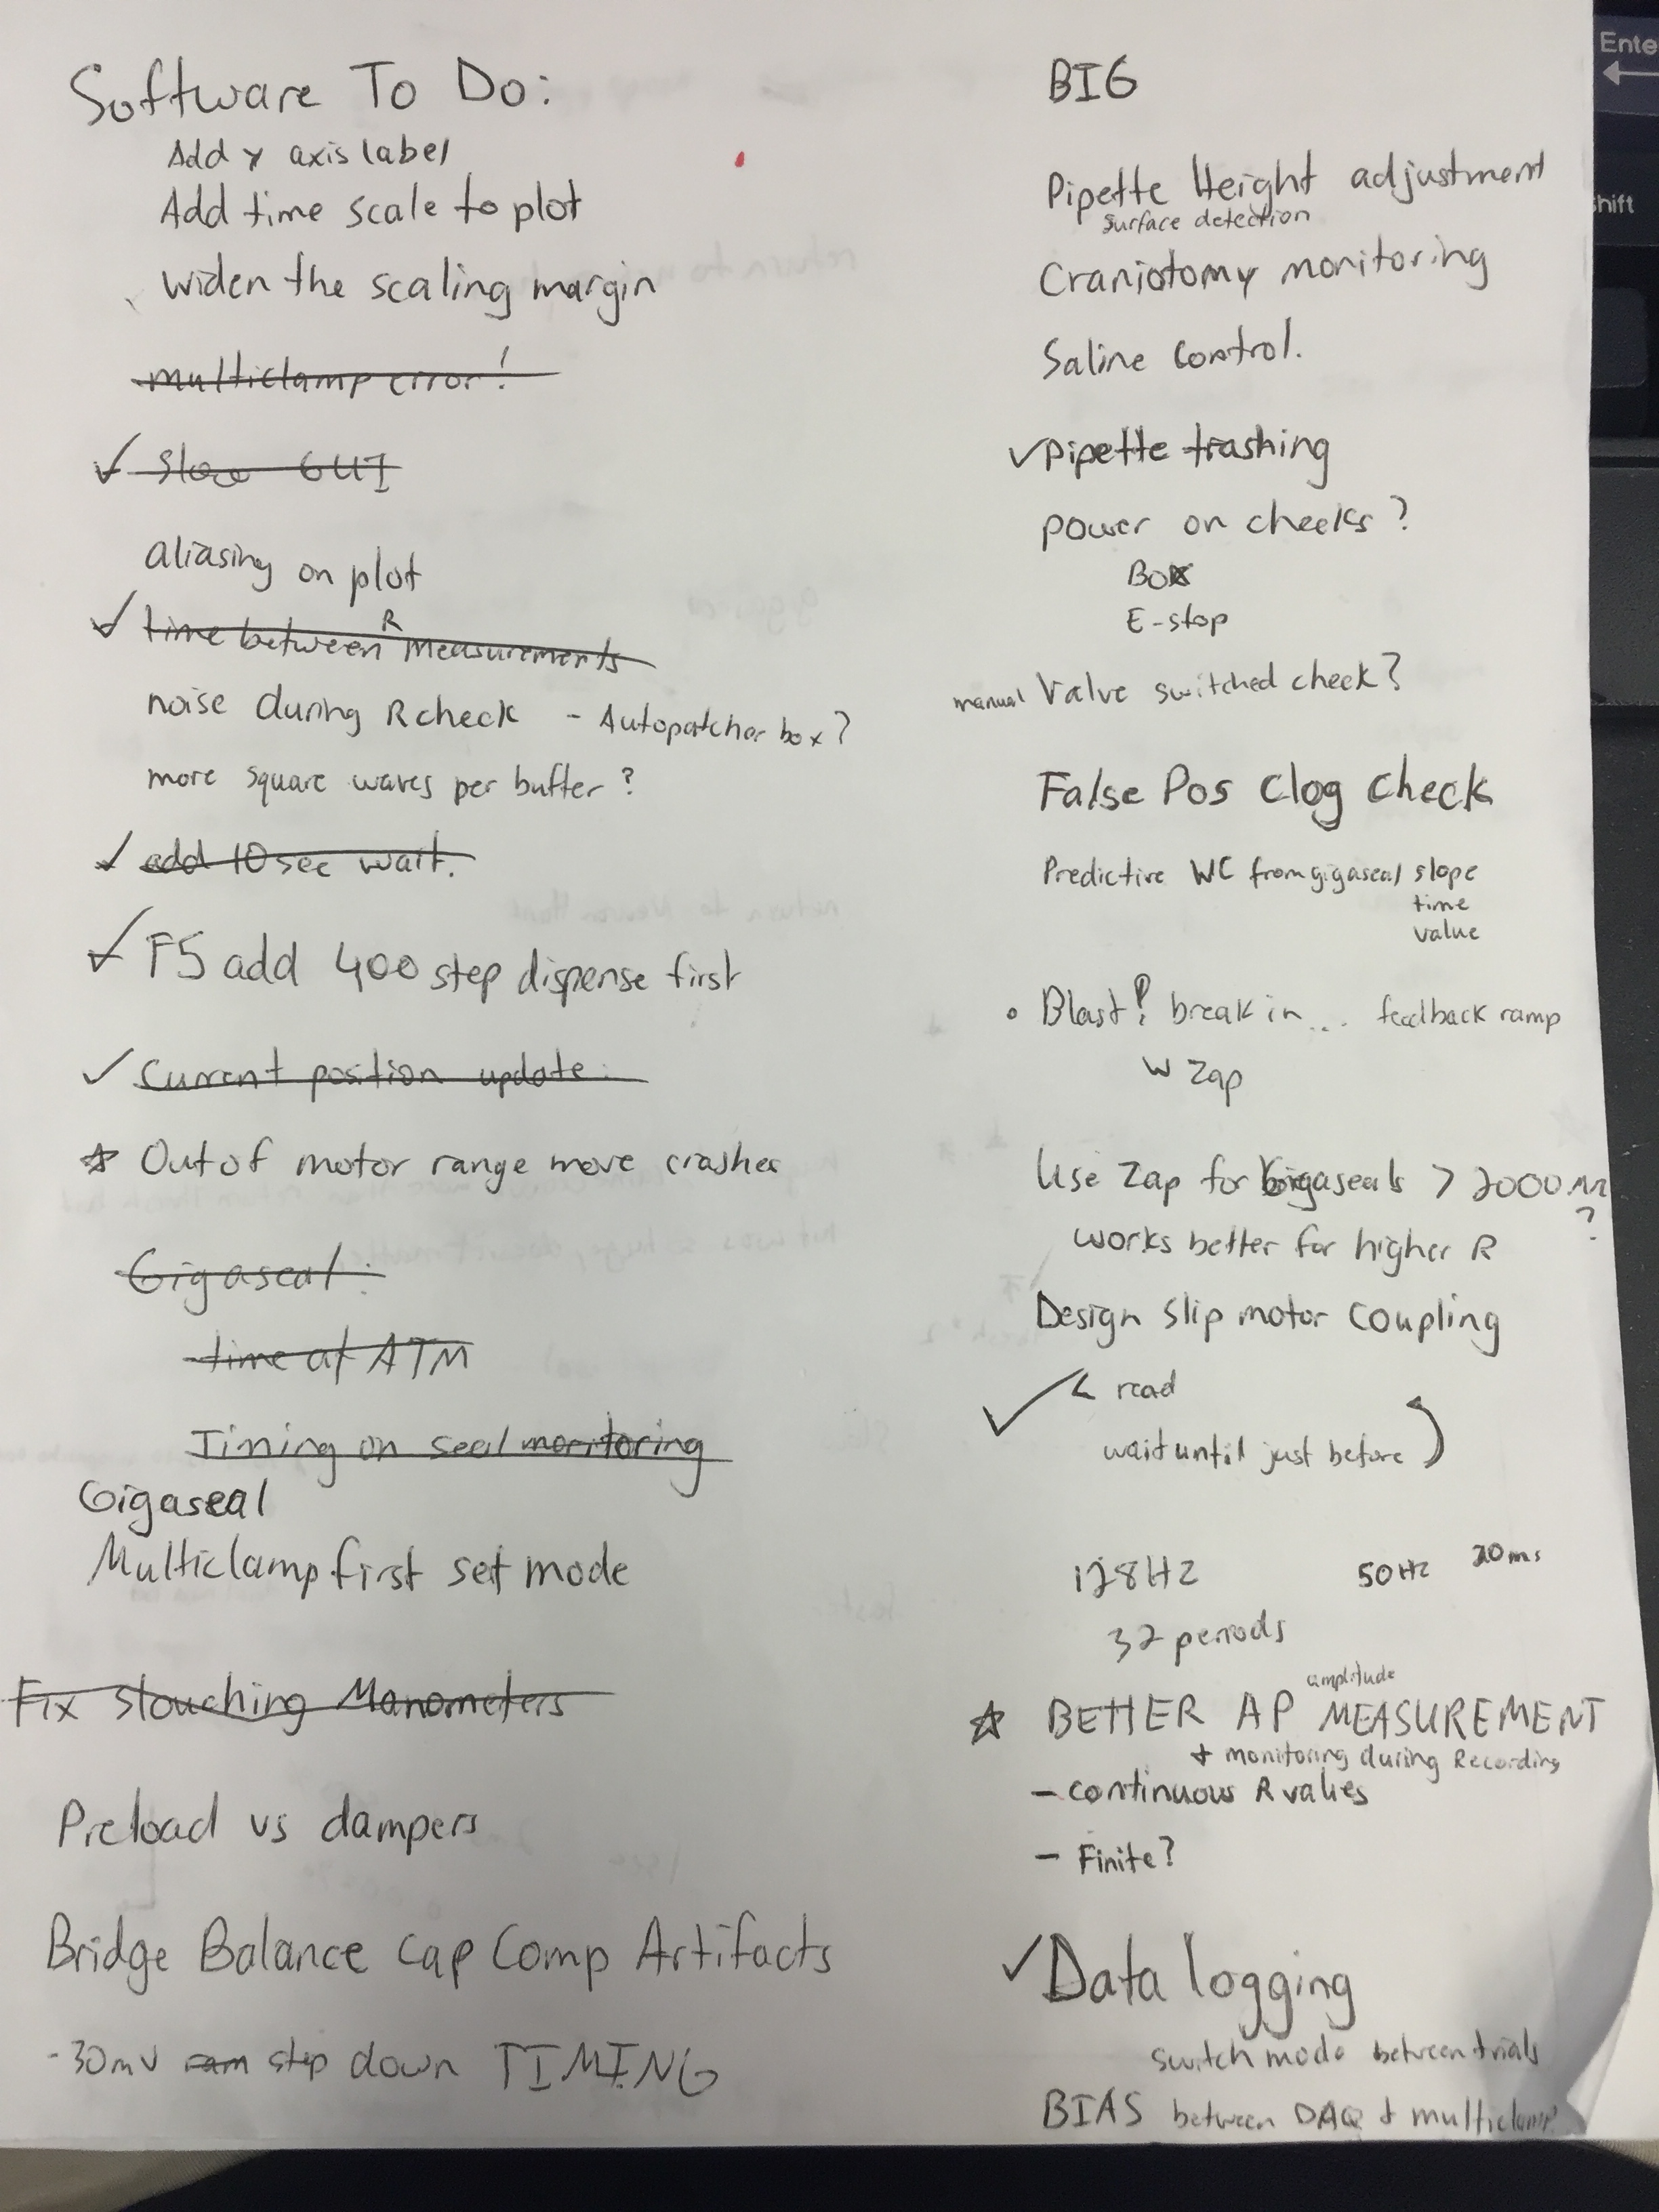 Software To Do:
Add y axis label
Add time scale to plot
widen the scaling margin
multiclamp error!
✓ slow GUI
aliasing on plot
✓ time between R measurements
noise during R check - Autopatcher box?
more square waves per buffer?
✓ add 10 sec wait.
✓ F5 add 400 step dispense first
✓ Current position update.
☆ Out of motor range move crashes
Gigaseal:
time at ATM
Timing on seal monitoring
Gigaseal
Multiclamp first set mode
Fix slouching Manometers
Preload vs dampers
Bridge Balance Cap Comp Artifacts
-30mV ram step down TIMING
BIG
Pipette Height adjustment
surface detection
Craniotomy monitoring
Saline Control.
✓ Pipette trashing
power on checks?
Box
E-stop
manual Valve switched check?
False Pos Clog Check
Predictive WC from gigaseal slope
time
value
• Blast? break in... feedback ramp
w Zap
Use Zap for Gigaseals > 2000 MΩ
?
works better for higher R
Design slip motor coupling
✓ < read
wait until just before
128Hz 50Hz 20ms
32 periods
amplitude
☆ BETTER AP MEASUREMENT
+ monitoring during Recording
- continuous R values
- Finite?
✓ Data logging
switch mode between trials
BIAS between DAQ + multiclamp
Ente
hift